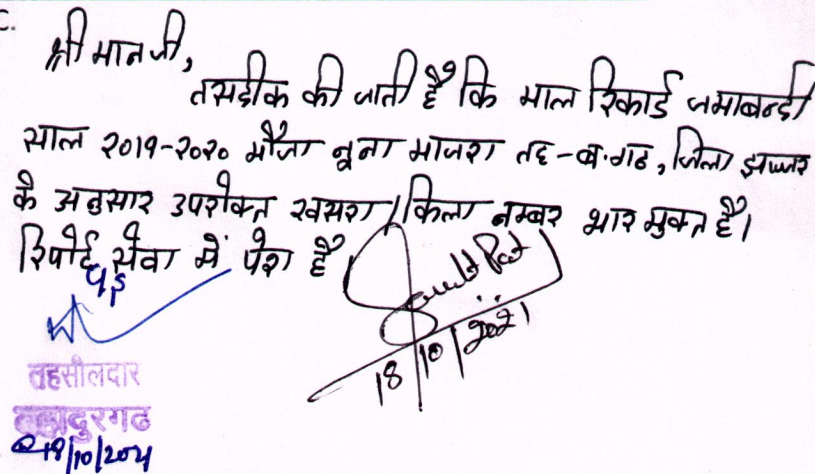 C.
श्री मान जी,
तसदीक की जाती है कि माल रिकार्ड जमाबन्दी
साल २०१९-२०२० मौजा नूना माजरा तह-ब.गढ, जिला झज्जर
के अनुसार उपरोक्त खसरा/किला नम्बर भार मुक्त है।
रिपोर्ट सेवा में पेश है।
18/10/2021
तहसीलदार
बहादुरगढ
18/10/2021